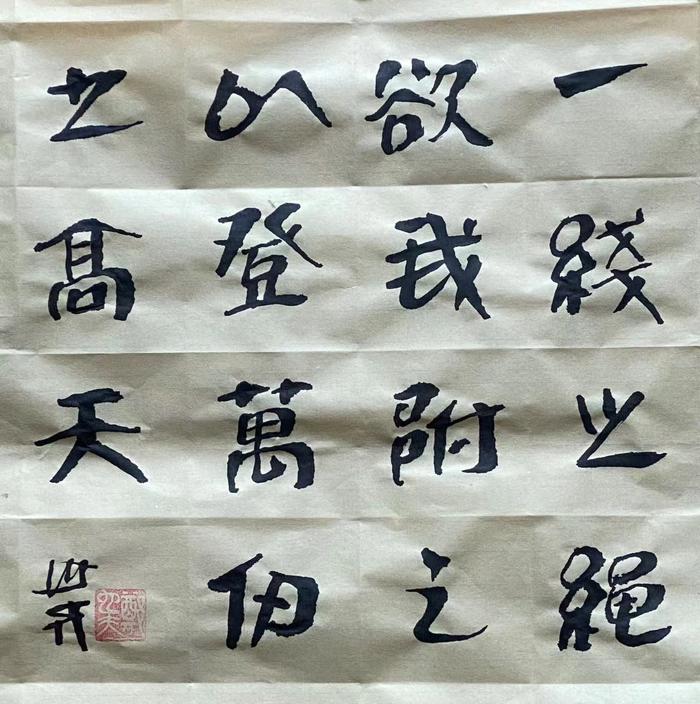 一綫之繩
欲我附之
以登萬仞
之高天